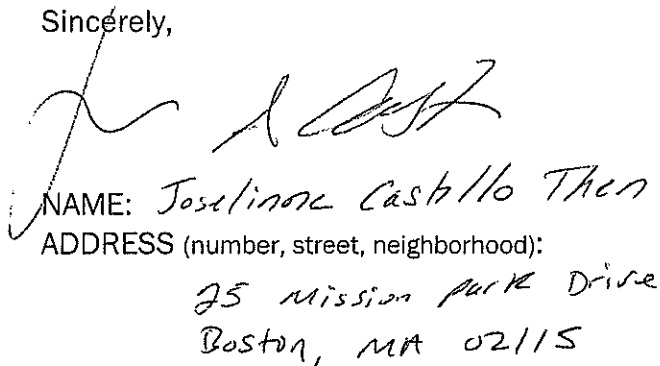 Sincerely,
NAME: Castillo Then
ADDRESS (number, street, neighborhood):
25 Mission park Drive
Boston, MA 02115